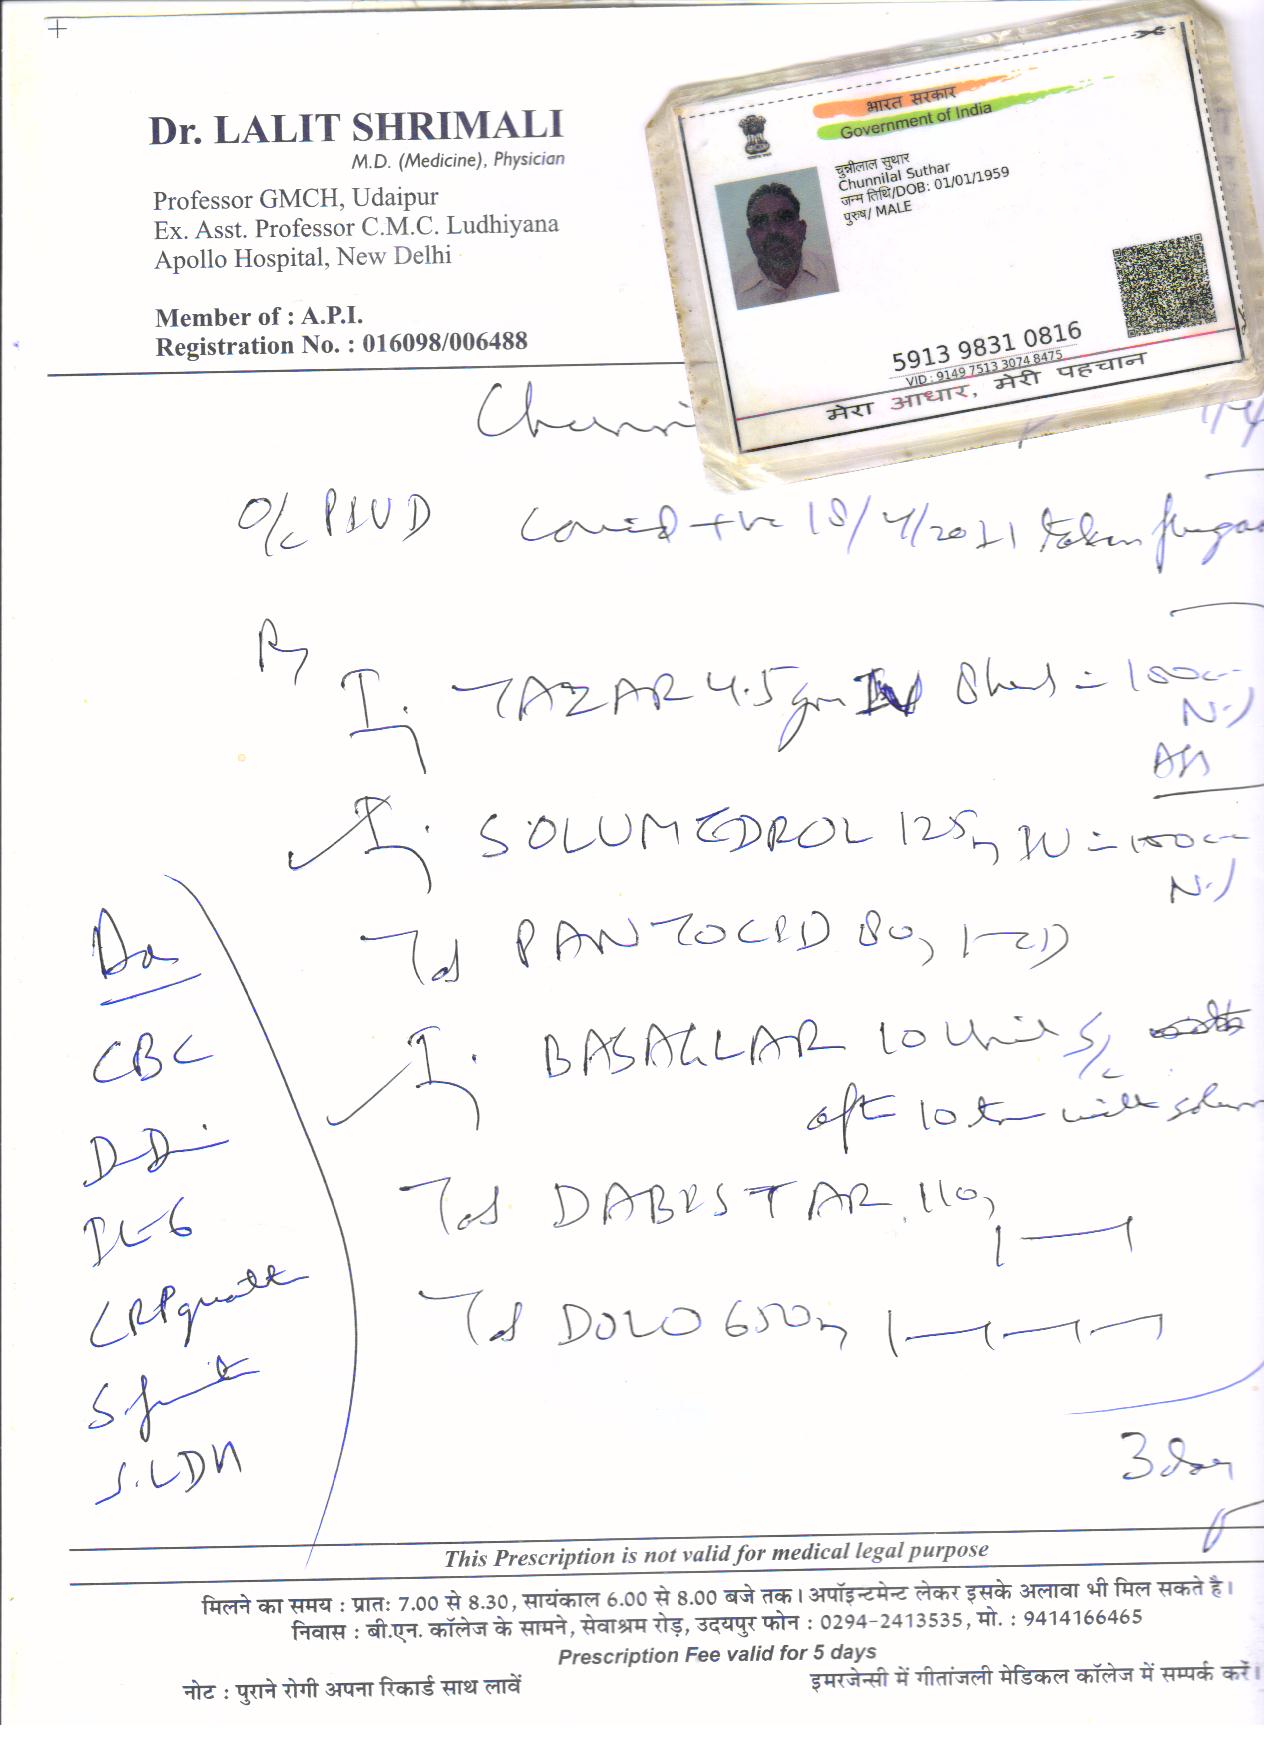 Dr. LALIT SHRIMALI
M.D. (Medicine), Physician
Professor GMCH, Udaipur
Ex. Asst. Professor C.M.C. Ludhiyana
Apollo Hospital, New Delhi
Member of : A.P.I.
Registration No. : 016098/006488
भारत सरकार
Government of India
चुन्नीलाल सुथार
Chunnilal Suthar
जन्म तिथि/DOB: 01/01/1959
पुरुष/ MALE
5913 9831 0816
VID : 9149 7513 3074 8475
मेरा आधार, मेरी पहचान
Chunni
Covid +ve 18/4/2021 taken
TAZAR 4.5 gm IV 8 = 100
SOLUMEDROL 125 IV = 100
PANTOCID 80
BASAGLAR 10 Unit S/c
after 10 with
DABISTAR 110
DOLO 650
3 day
CBC
D-Di
IL-6
CRP
S. LDH
This Prescription is not valid for medical legal purpose
मिलने का समय : प्रातः 7.00 से 8.30, सायंकाल 6.00 से 8.00 बजे तक। अपॉइन्टमेन्ट लेकर इसके अलावा भी मिल सकते है।
निवास : बी.एन. कॉलेज के सामने, सेवाश्रम रोड़, उदयपुर फोन : 0294-2413535, मो. : 9414166465
Prescription Fee valid for 5 days
नोट : पुराने रोगी अपना रिकार्ड साथ लावें इमरजेन्सी में गीतांजली मेडिकल कॉलेज में सम्पर्क करें।